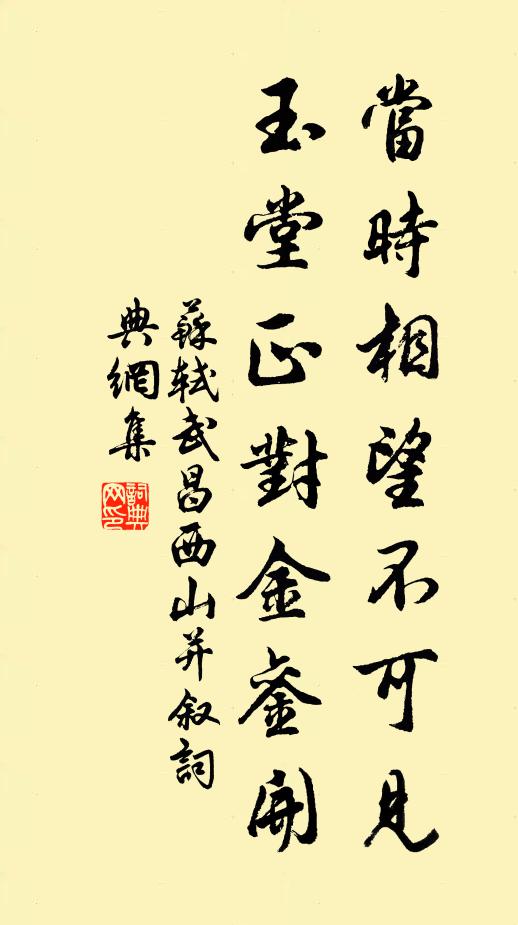 當時相望不可見
玉堂正對金銮開
蘇軾武昌西山并叙詞
典網集
詞典
网印